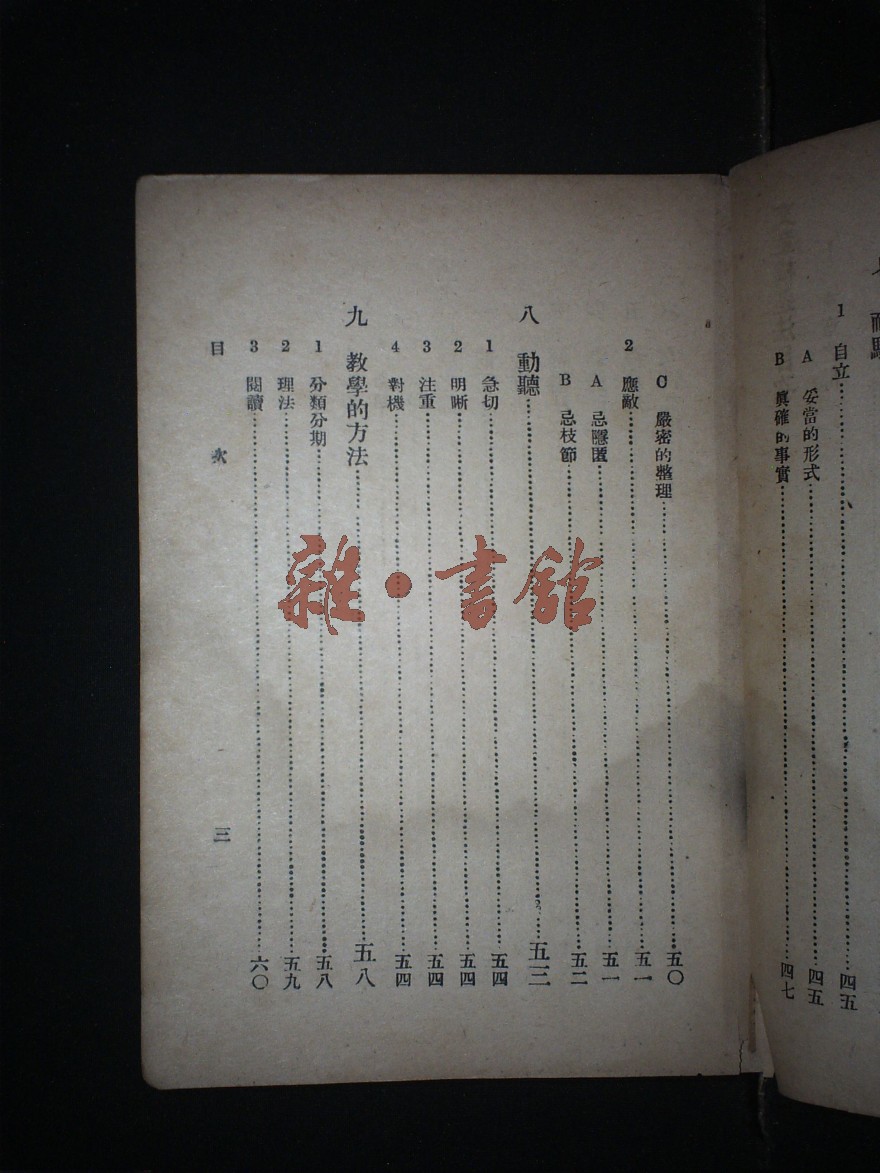 1 自立……四五
A 妥當的形式……四五
B 眞確的事實……四七
C 嚴密的整理……五〇
2 應敵……五一
A 忌隱匿……五一
B 忌枝節……五二
八 動聽……五三
1 急切……五四
2 明晰……五四
3 注重……五四
4 對機……五四
九 教學的方法……五八
1 分類分期……五八
2 理法……五九
3 閱讀……六〇
目次 三
雜·書館